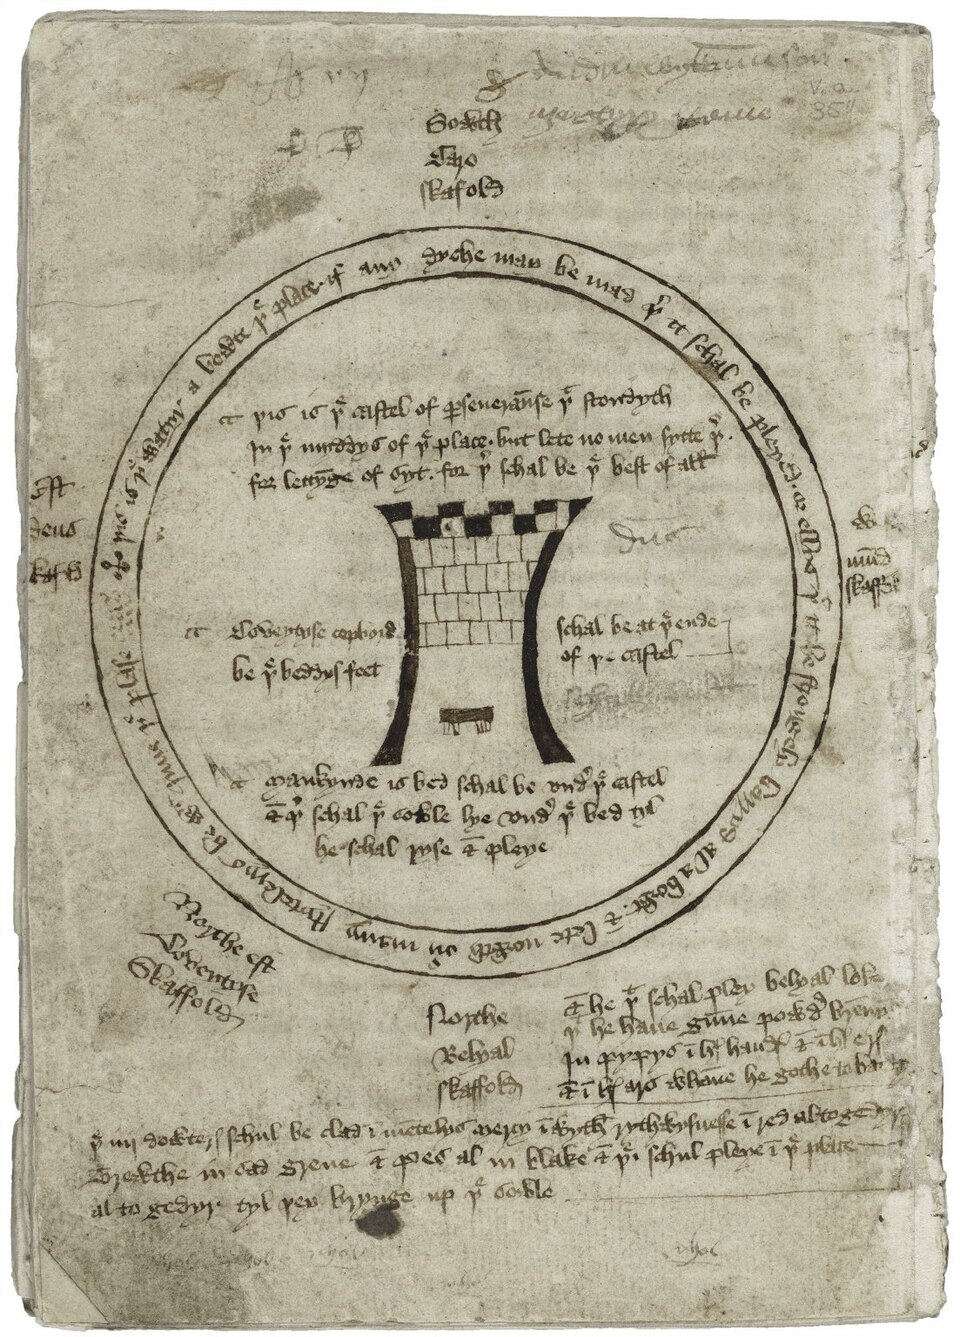 Sowth
Caro
skafold
þis is þe watyr a bowte þe place. if any dyche may be mad þer it schal be pleyed. or ellys þat it be strongely barryd al a bowt. & lete nowth ou̯ many stytelerys be wtinne þe plase
þis is þe castel of pseueraūse þt stondyth
In þe myddys of þe place. but lete no men sytte þer.
for lettyge of syt. for þer schal be þe best of all
Est
deus
skafold
w
mūd
skaffold
Coveytyse copbord
be þe beddys feet
schal be at þe ende
of þe castel
Mankynde is bed schal be undyr þe castel
& þer schal þe sowle lye undyr þe bed tyl
he schal ryse & pleye
Northe est
Coveytyse
Skaffold
Northe
Belyal
skaffold
& he þt schal pley belyal loke
þt he haue gūne powdyr brennyng
In pypys ī hs handys & ī hs erys
& ī hs ars whāne he gothe to batayl
þe iiij dowters schul be clad ī mentelys mercy ī wyth rythwysnesse ī red al togedyr
Trewthe in sad grene & pes al in blake & þei schul pleye ī þe place
al to gedyr tyl þey brynge up þe sowle